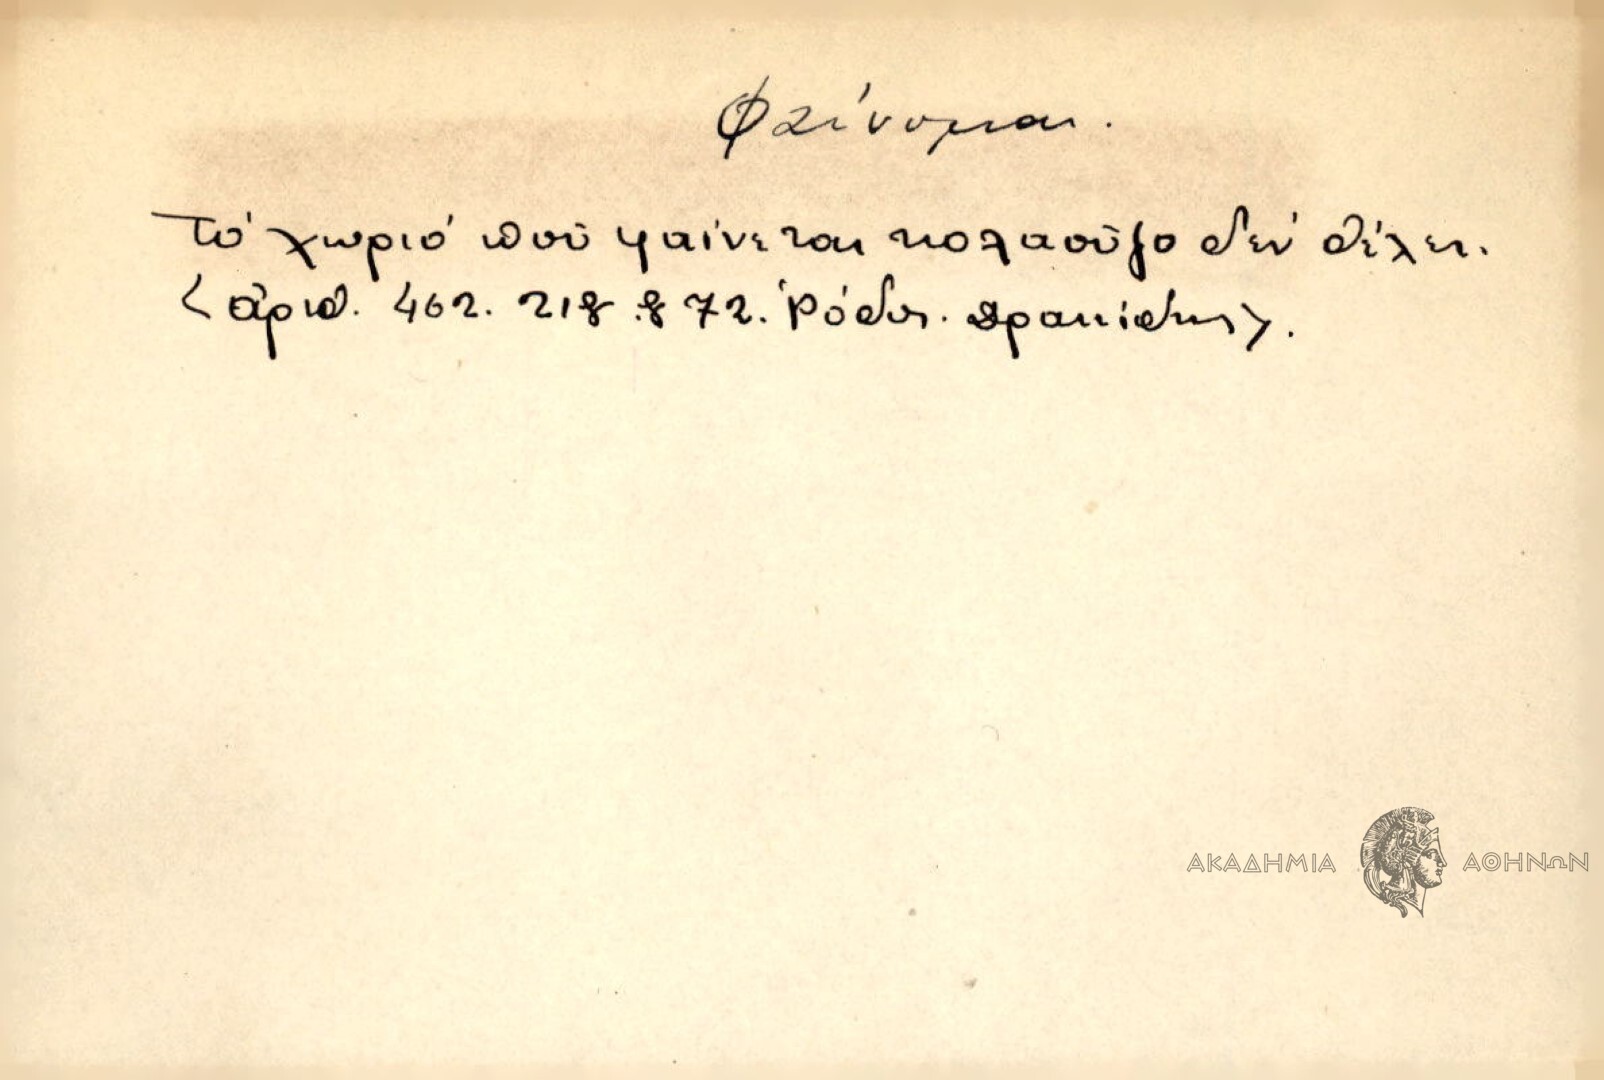 Φαίνομαι.
Τό χωριό ποῦ φαίνεται κολαοῦζο δέν θέλει.
<ἀριθ. 462. 218. 872. Ῥόδος. Δρακίδης>.
ΑΚΑΔΗΜΙΑ ΑΘΗΝΩΝ